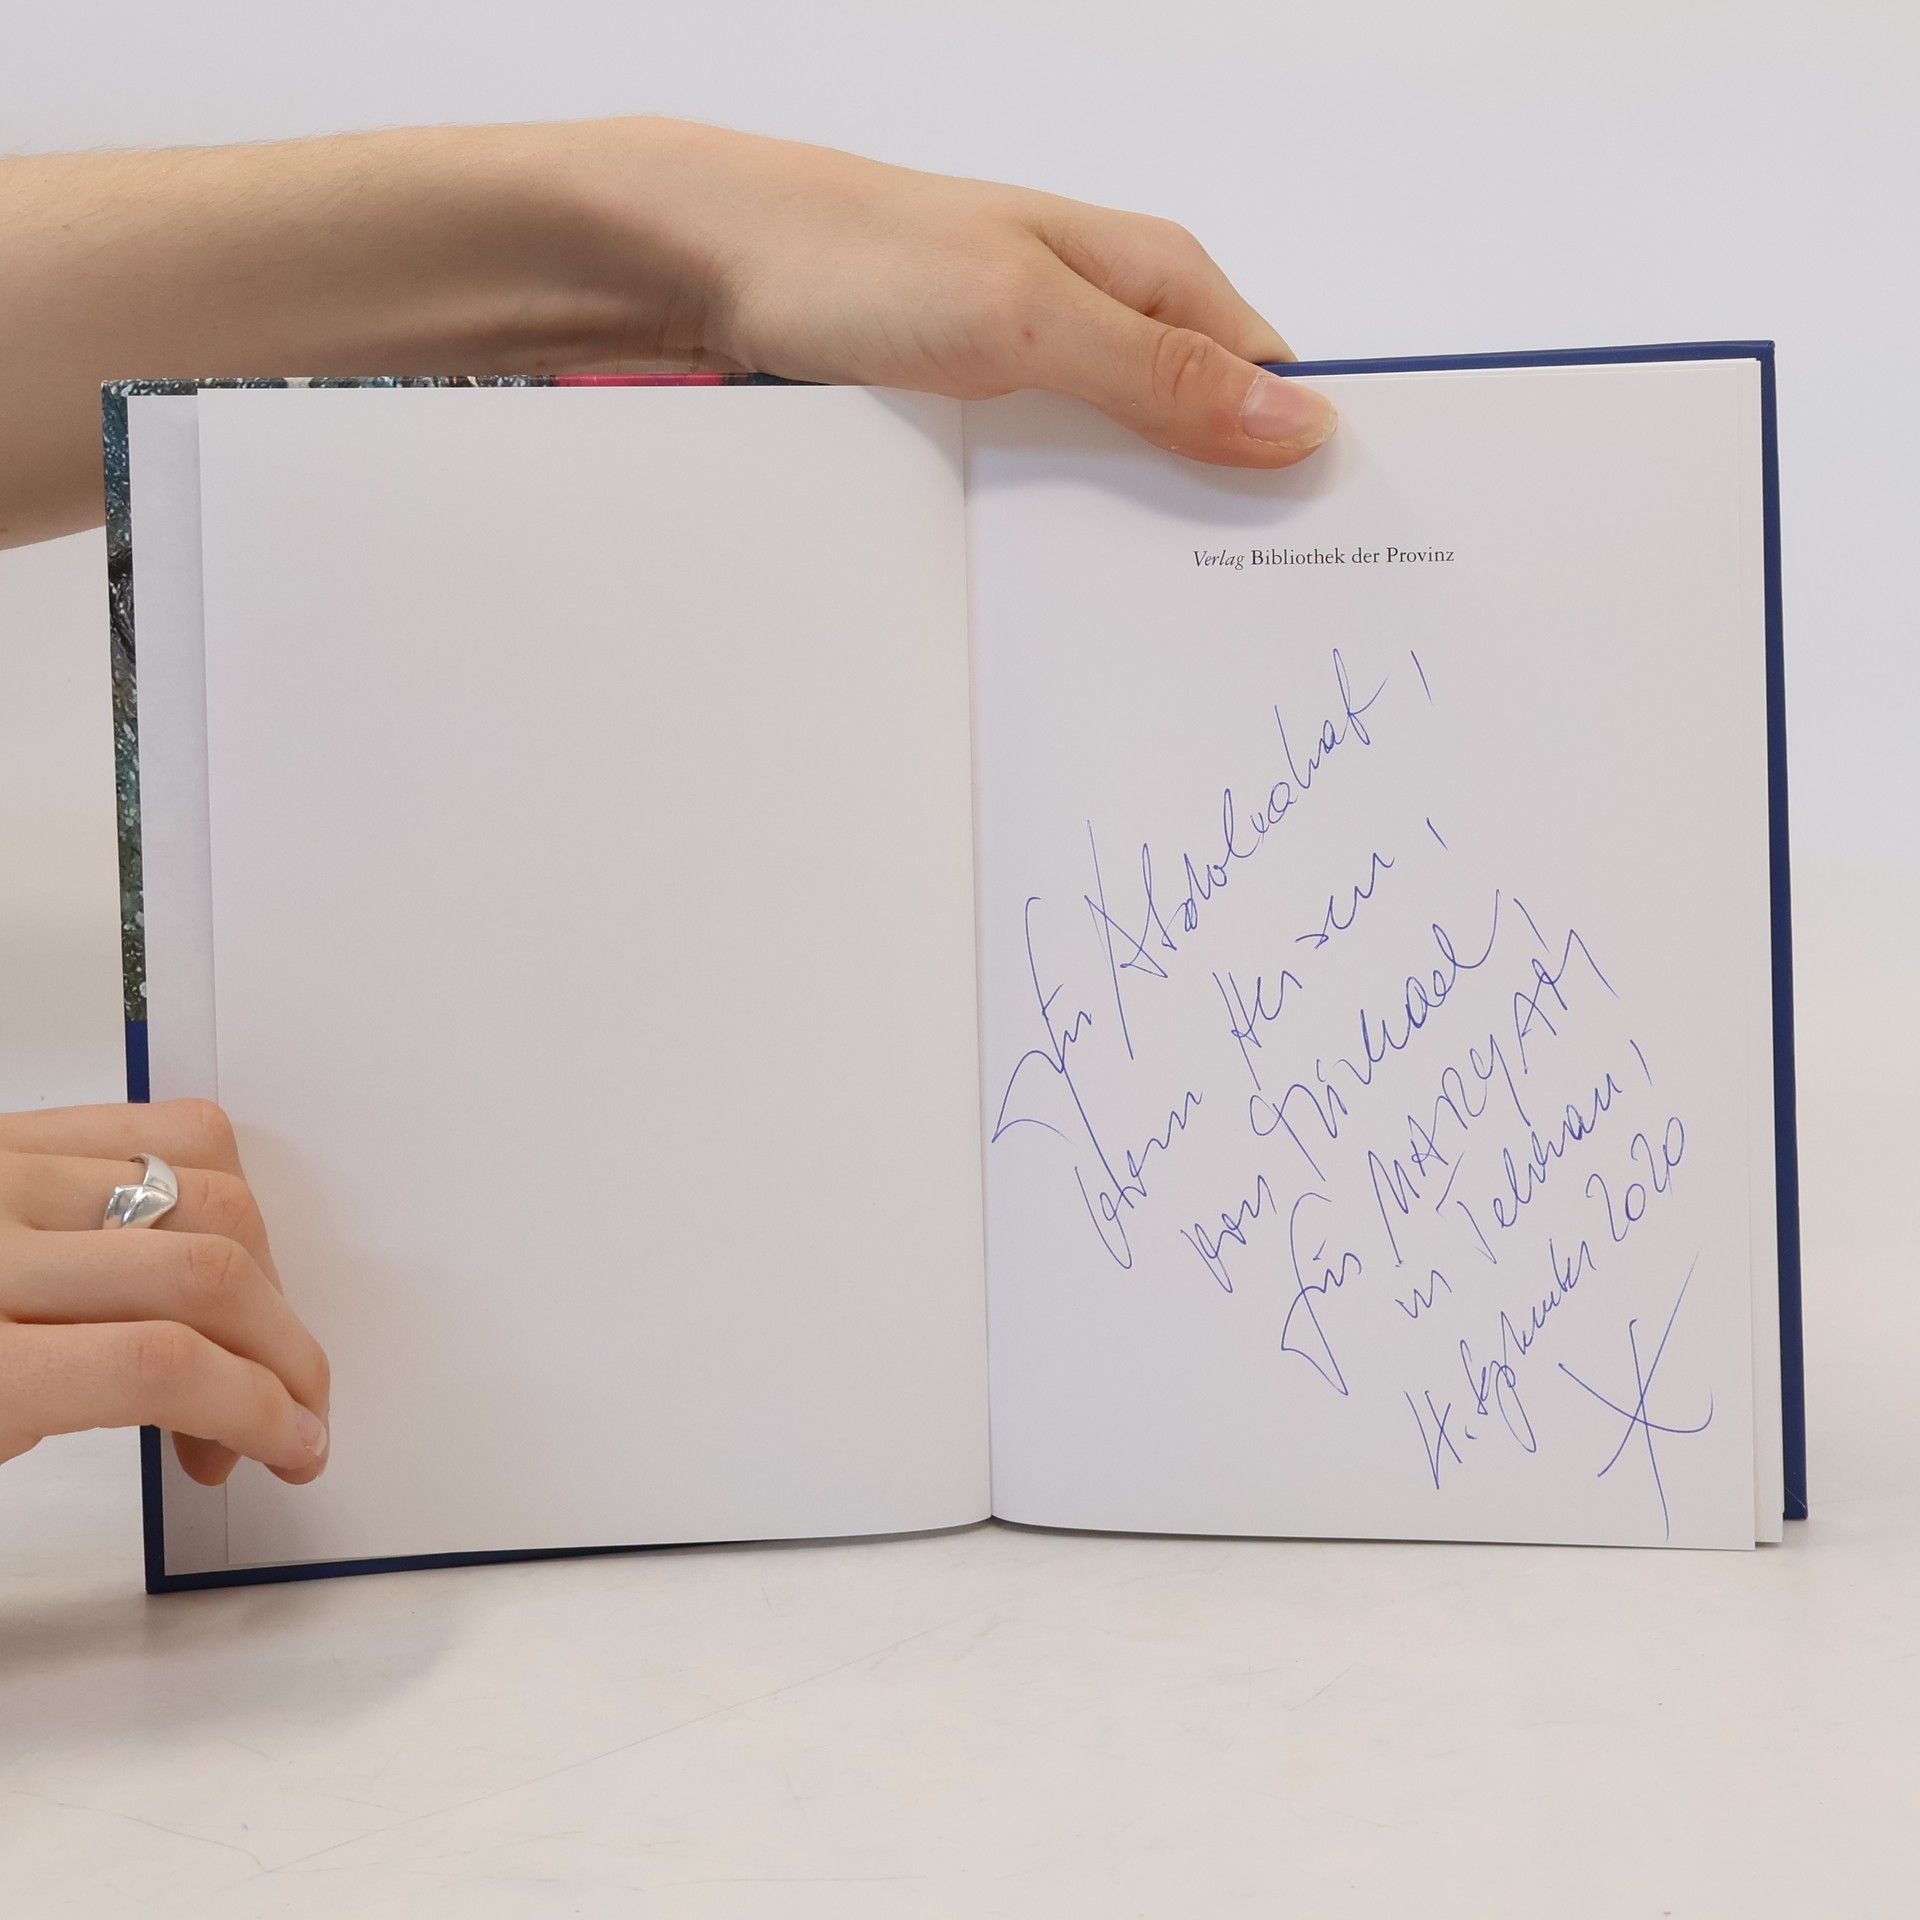 Verlag Bibliothek der Provinz
Für Abdolvahab,
vom Herzen,
von Michael
für MARYAM,
in Teheran,
4. September 2020